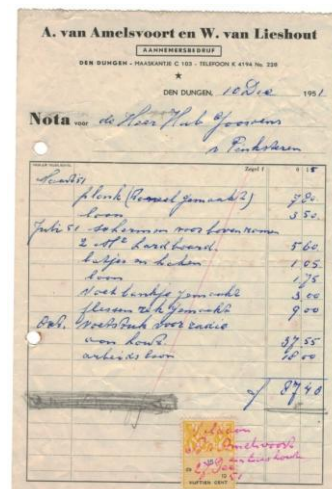 A. van Amelsvoort en W. van Lieshout
AANNEMERSBEDRIJF
DEN DUNGEN - MAASKANTJE C 103 - TELEFOON K 4194 No. 328
DEN DUNGEN, 10 Dec 1951
Nota voor de Heer Hub
Zegel f 0 15
Maart 51
plank gemaakt 7 80
loon 3 50
Juli 51 schermen voor bovenramen
2 M² hardboard 5 60
haken 1 05
loon 1 75
Voetbankje gemaakt 3 00
flessenrek gemaakt 9 00
Oct. Voetstuk voor radio
aan hout 37 55
arbeidsloon 18 00
f 87 40
Voldaan
Amelsvoort
VIJFTIEN CENT